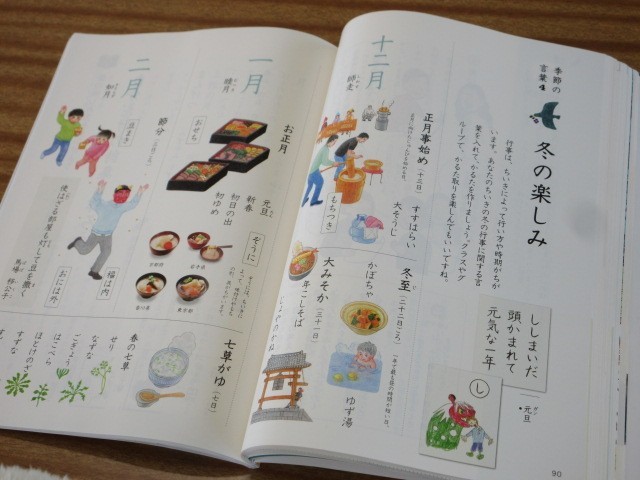 季節の
言葉4
冬の楽しみ
行事は、ちいきによって行い方や時期がちが
います。あなたのちいきの冬の行事に関する言
葉を入れて、かるたを作りましょう。クラスやグ
ループで、かるた取りを楽しんでもいいですね。
ししまいだ
頭、かまれて
元気な一年
・元旦
し
90
十二月
師走
正月事始め(十三日)
すすはらい
大そうじ
もちつき
冬至(二十二日ごろ)
一年で最も昼の時間が短い日。
かぼちゃ
ゆず湯
大みそか(三十一日)
年こしそば
じょやのかね
一月
睦月
お正月
おせち
元旦
新春
初日の出
初ゆめ
ぞうに
七草がゆ(七日)
春の七草
せり
なずな
ごぎょう
はこべら
ほとけのざ
すずな
二月
如月
節分
豆まき
福は内
おには外
使はざる部屋も灯して豆を撒く
馬場 移公子